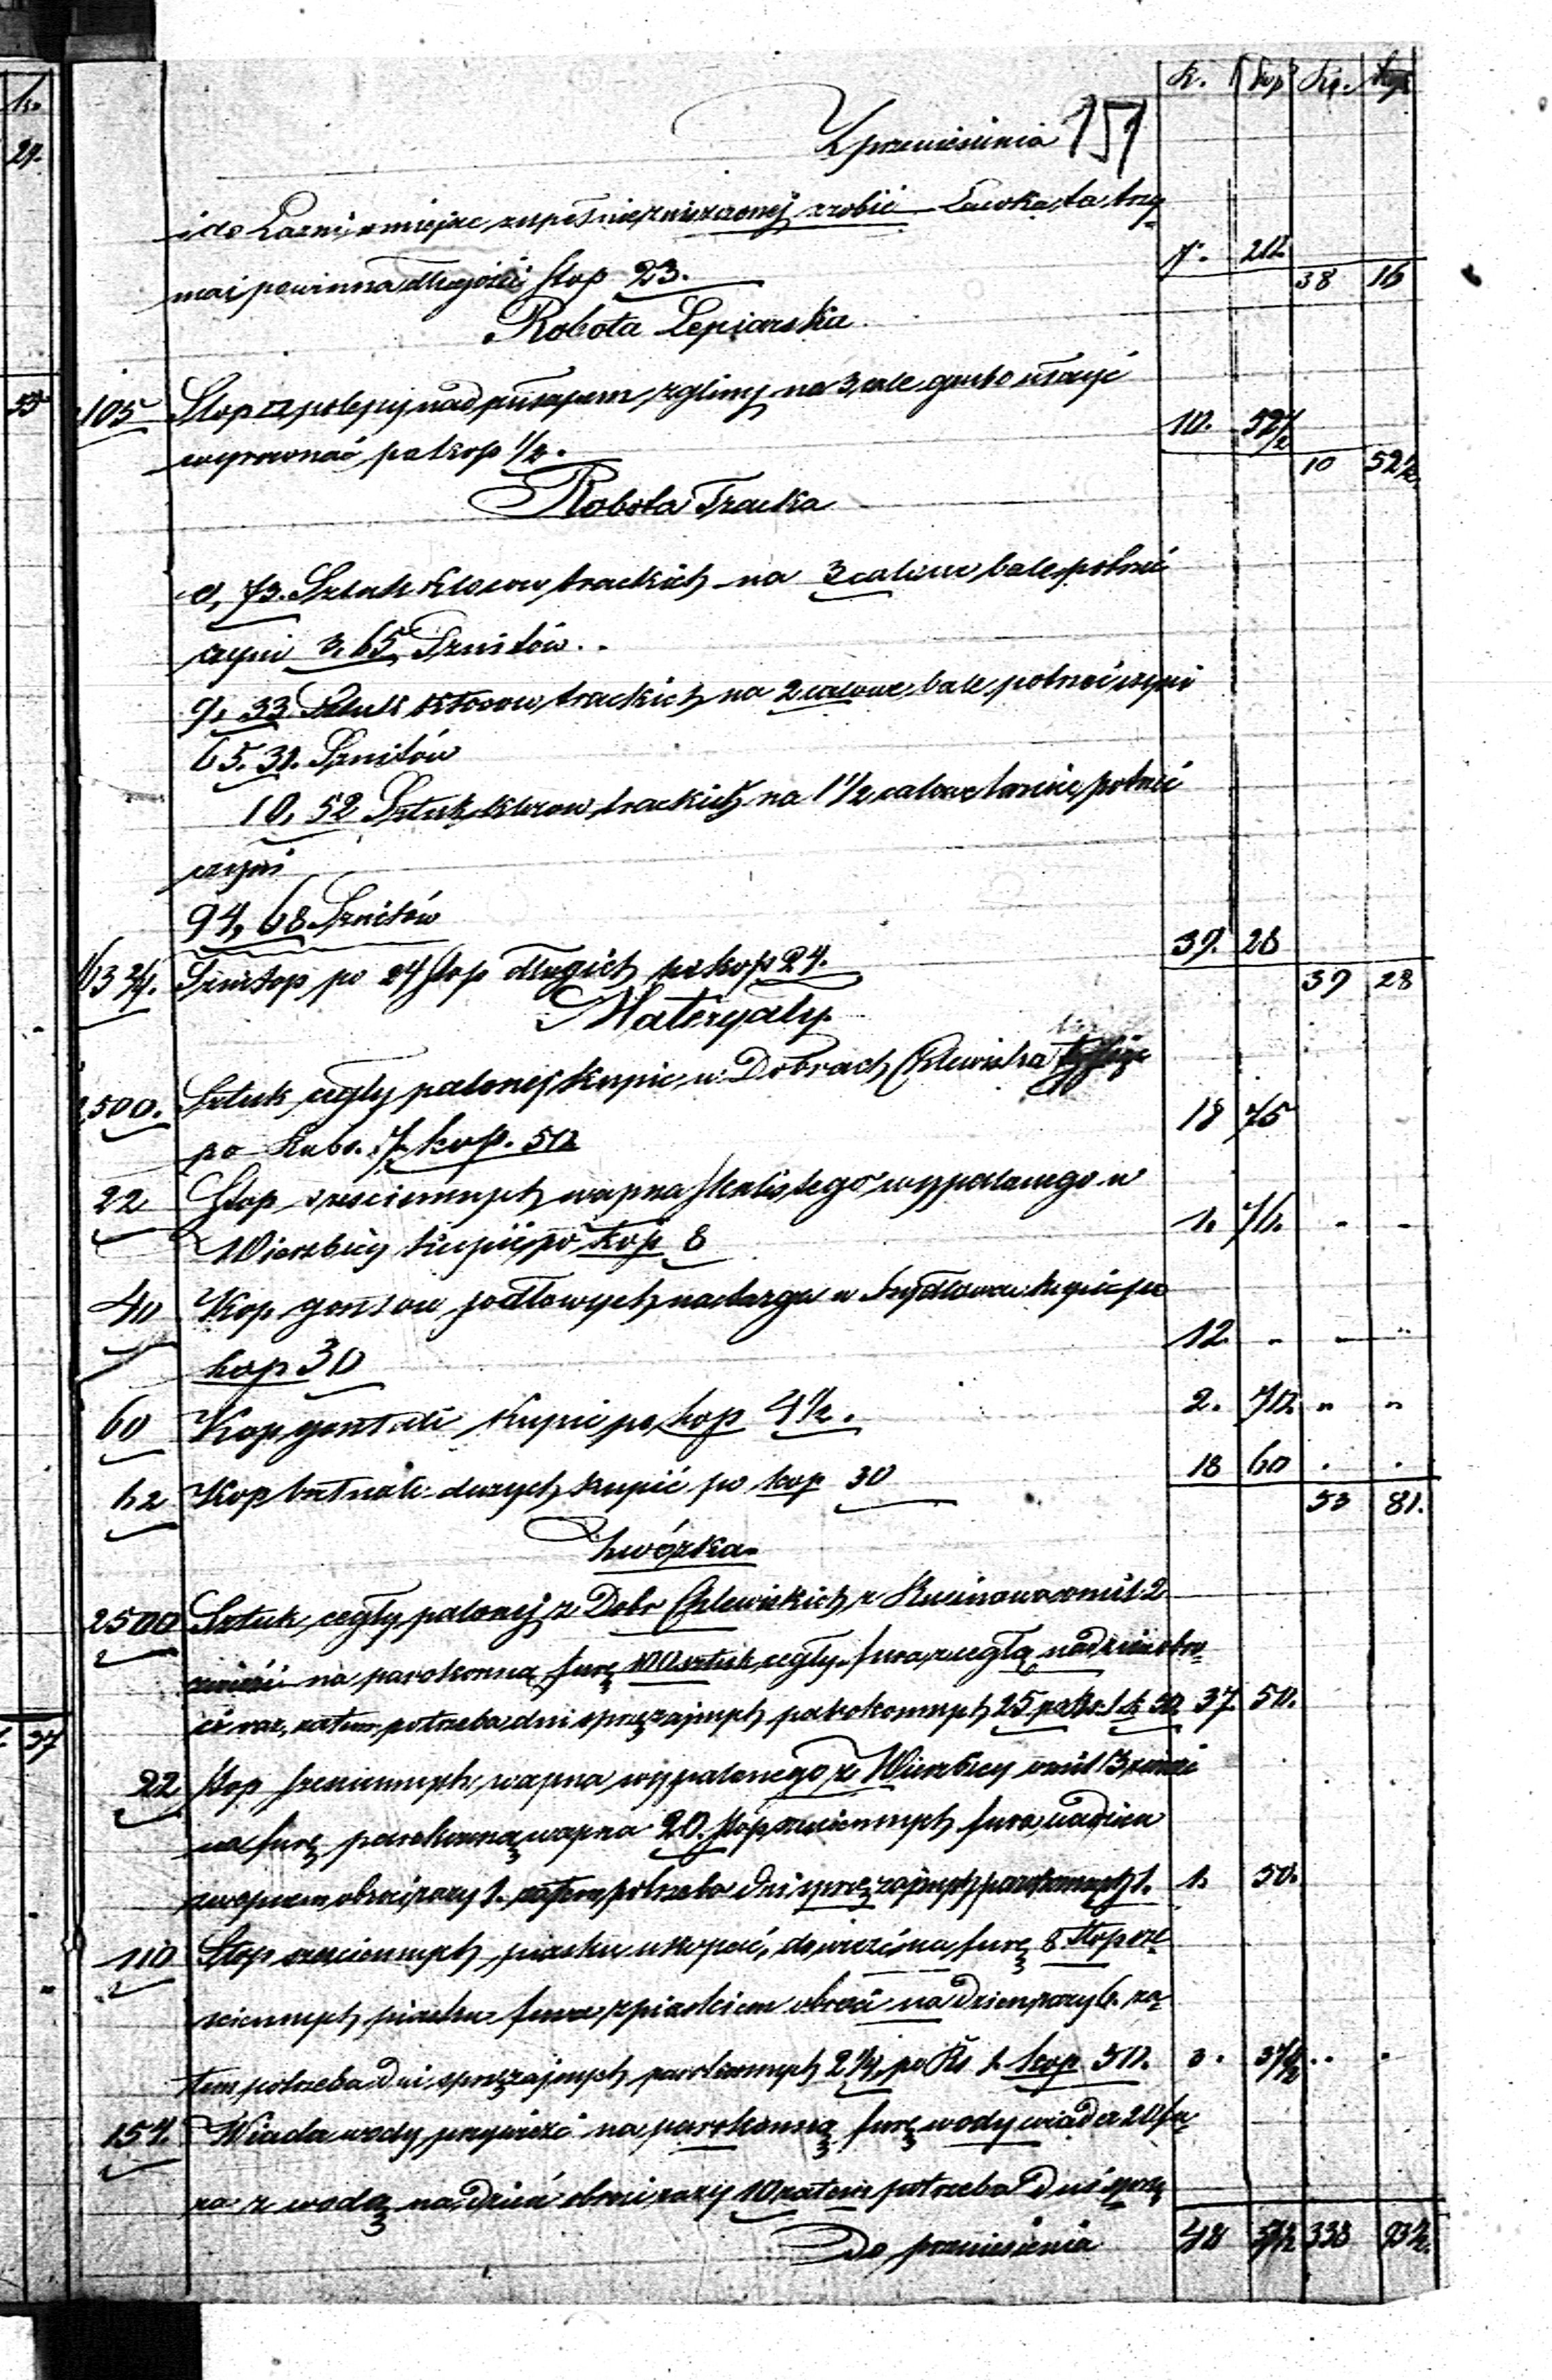 R. kop Rs. kop
Z przeniesienia 151
i do Łazni, w miejsce zupełnie zniszczonej zrobić Ławka ta trzy
mać powinna długości stop 23. 7. 20
38 16
Robota Lepiarska
105 Stop □ polepy nad pułapem z gliny na 3 cale grubo ułożyć
wyrownać, po kop 1/2. 10. 52 1/2
10 52 1/2
Robota Tracka
a, 73. Sztuk klocow trackich na 3 calowe bale potrzeć
czyni 3.65 Sznitów
9, 33 Sztuk klocow trackich na 2 calowe bale potrzeć czyni
65.31. Sznitów
10, 52 Sztuk klocow trackich na 1 1/2 calowe tarcice potrzeć
czyni
94, 68 Sznitów
Sznitop po 24 stop długich po kop 24. 39. 28
39 28
Materyały
2500. Sztuk cegły palonej kupić w Dobrach Chlewiska
po Rubs. 7 kop. 50 18 75
22 Stop szesciennych wapna skalistego wypalanego w
Wierzbicy kupić po kop 8 1. 76.
40 Kop gontow jodłowych na targu w Szydłowcu kupić po
kop 30 12. - - -
60 Kop gontali kupić po kop 4 1/2. 2. 70 " "
62 Kop bretnali duzych kupić po kop 30 18 60 . .
53 81.
Zwózka
2500 Sztuk cegły palonej z Dobr Chlewiskich z mil 2
zwieść na parokonną furę 100 sztuk cegły. fura z cegłą na dzien obro
ci raz, zatem potrzeba dni sprzężajnych parokonnych 25 po Rs. 1 k 50 37. 50.
22 stop szesciennych wapna wypalanego z Wierzbicy mil 3 zwieść
na furę parokonną wapna 20. stop szesciennych fura na dzien
z wapnem obroci razy 1. zatem potrzeba dni sprzężajnych parokonnych 1. 1. 50.
110 Stop szesciennych piasku ukopać, dowieść na furę 8 stop sze
sciennych piasku fura z piaskiem obroci na dzien razy 6. za
tem potrzeba dni sprzężajnych parokonnych 2 1/4, po Rs 1 kop 50. 3. 37 1/2 . .
154. Wiader wody przywieźć na parokonną furę wody wiader 20 fu
ra z wodą na dzień obroci razy 10 zatem potrzeba dni sprzę
Do przeniesienia 42 37 1/2 338 93 1/2.